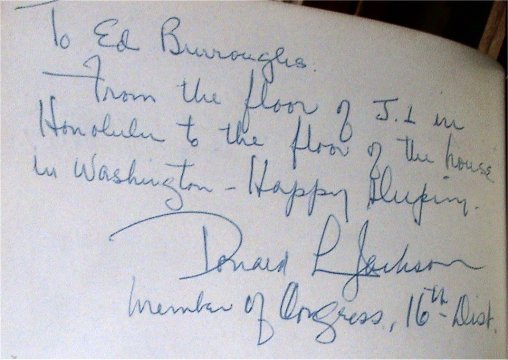 To Ed Burroughs.
From the floor of J.I in
Honolulu to the floor of the house
in Washington - Happy Sleeping.
Donald L Jackson
Member of Congress, 16th Dist.